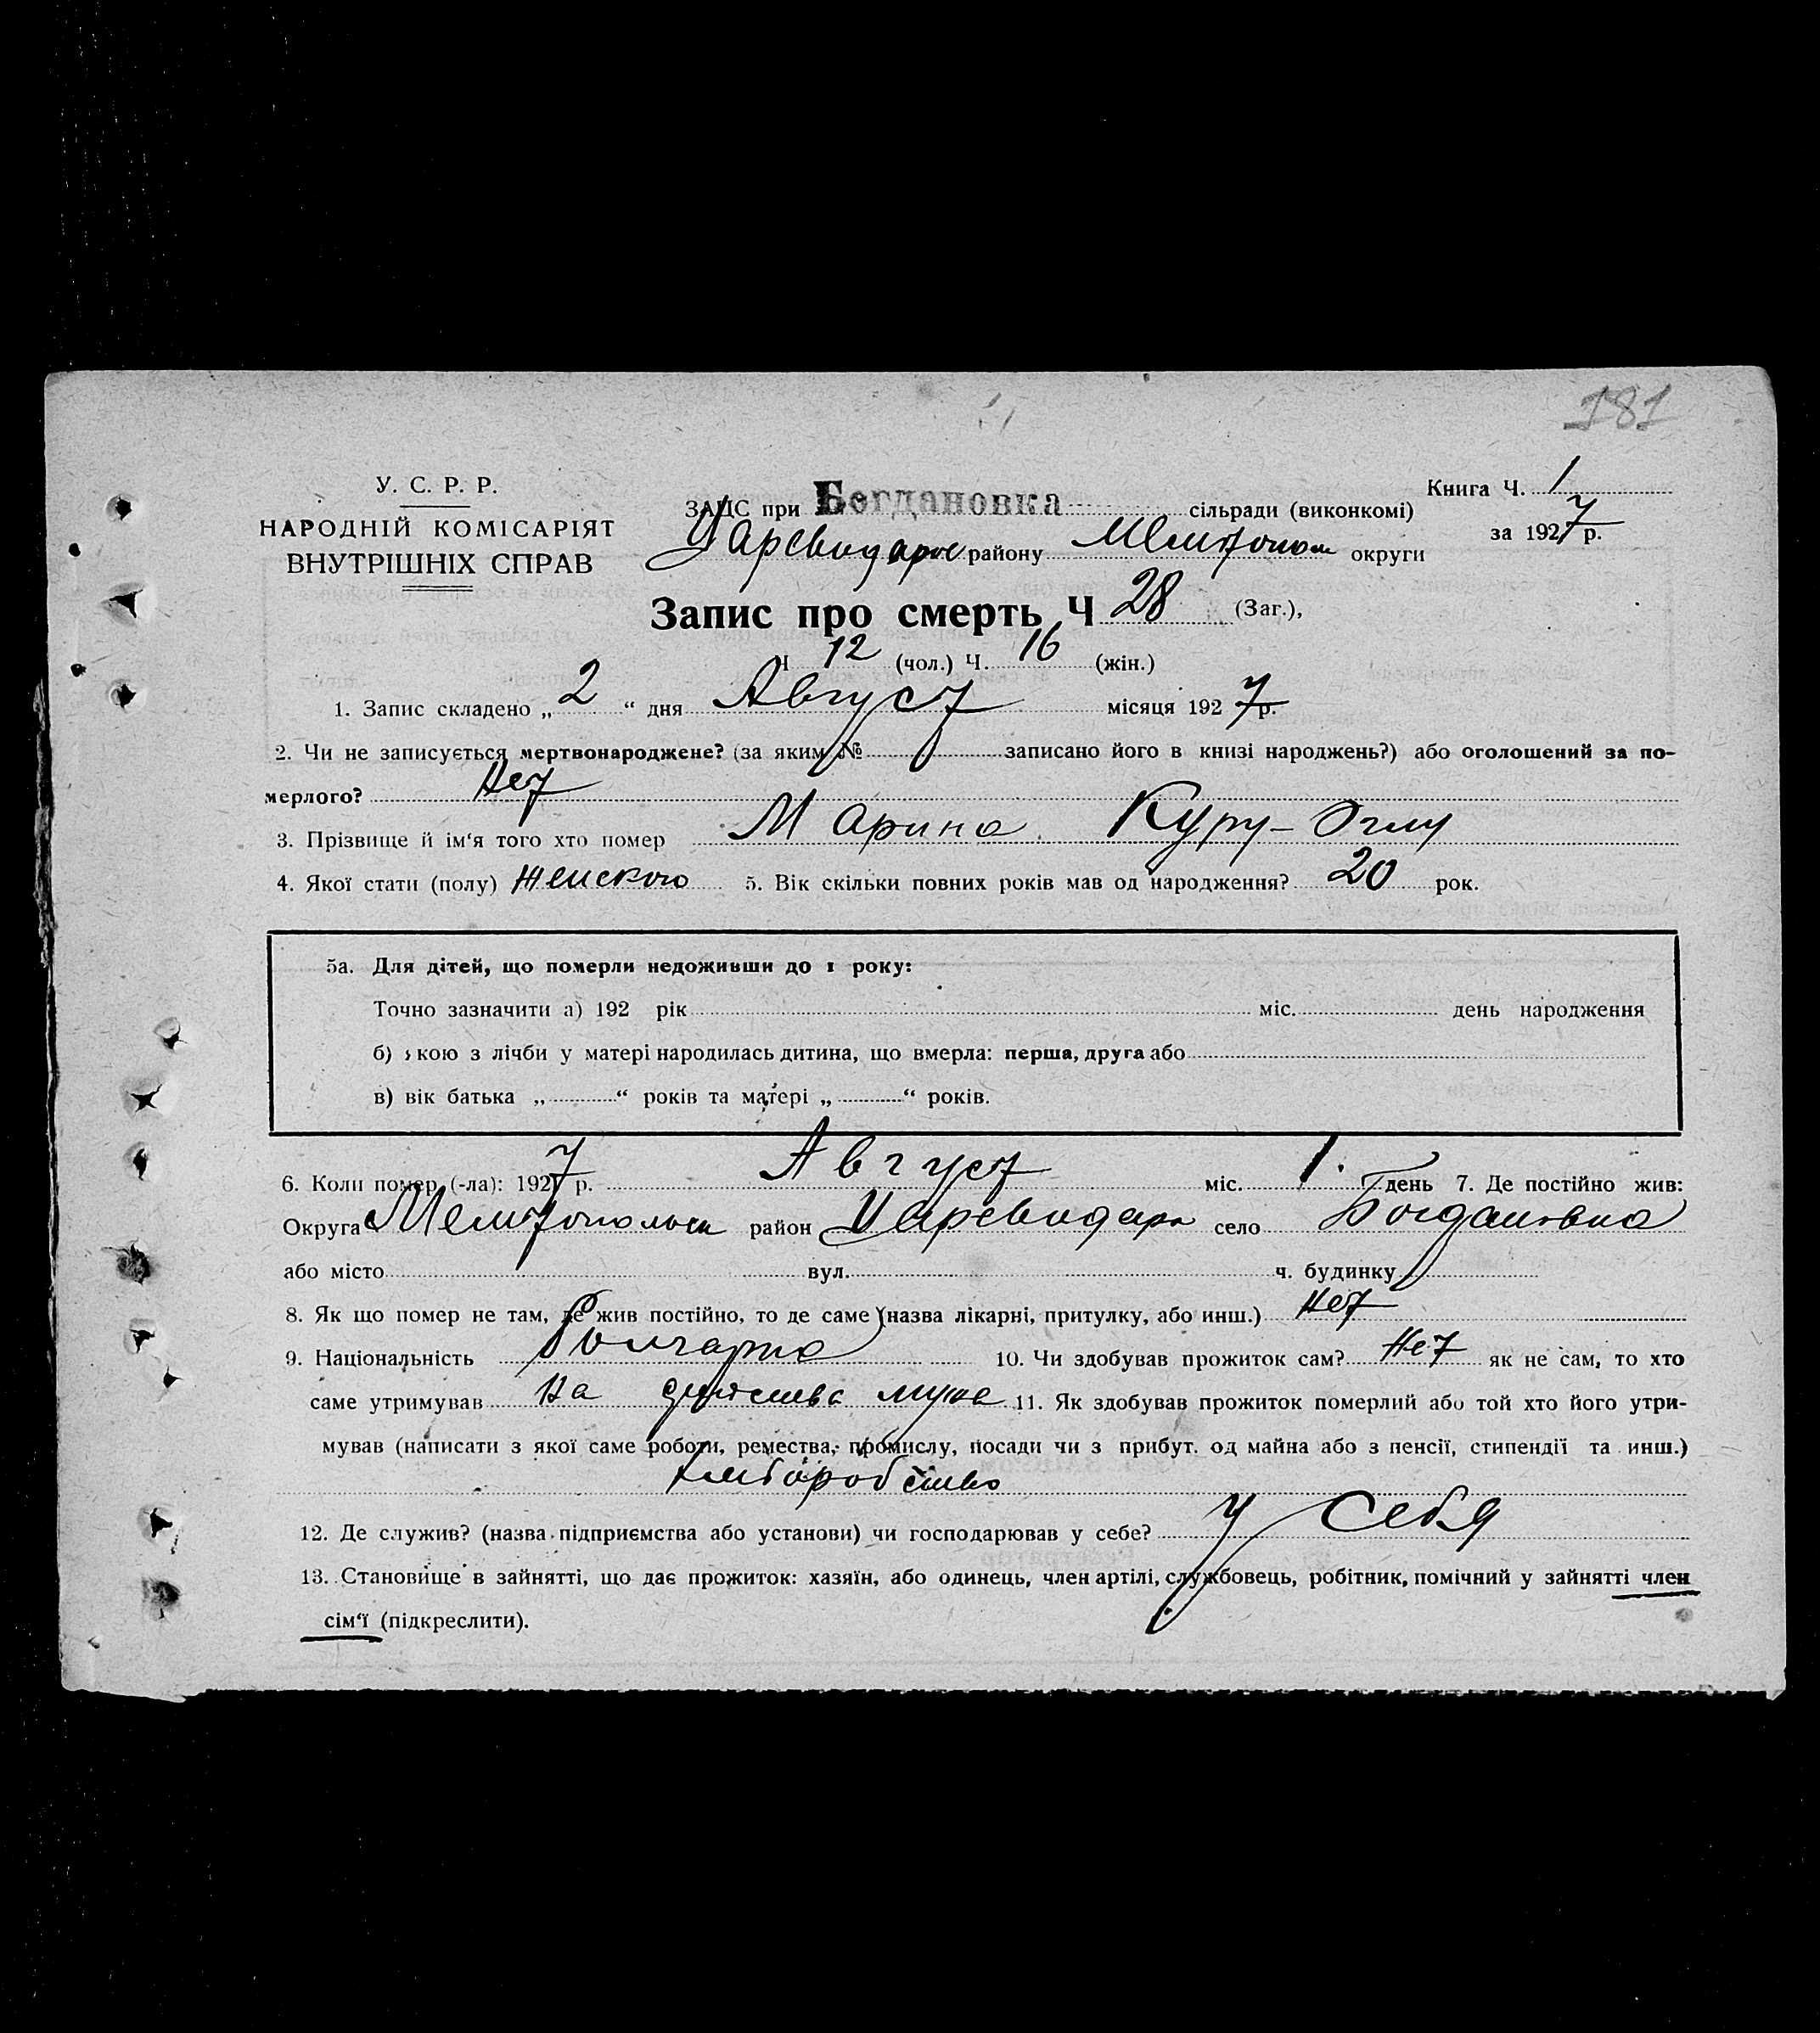 181
У. С. Р. Р.
НАРОДНІЙ КОМІСАРІЯТ
ВНУТРІШНІХ СПРАВ
ЗАЦС при Богдановка сільради (виконкомі)
Книга Ч. 1
району Мелитопол округи
за 1927 р.
Запис про смерть Ч 28 (Заг.),
Ч 12 (чол.) Ч. 16 (жін.)
1. Запис складено „ 2 “ дня Август місяця 1927 р.
2. Чи не записується мертвонароджене? (за яким № записано його в книзі народжень?) або оголошений за по-
мерлого? Нет
3. Прізвище й ім‘я того хто помер Марина Куру-Оглу
4. Якої стати (полу) Женского 5. Вік скільки повних років мав од народження? 20 рок.
5а. Для дітей, що померли недоживши до 1 року:
Точно зазначити а) 192 рік міс. день народження
б) якою з лічби у матері народилась дитина, що вмерла: перша, друга або
в) вік батька „ “ років та матері „ “ років.
6. Коли помер (-ла): 1927 р. Август міс. 1. день 7. Де постійно жив:
Округа Мелитопольск район Цареводар село Богдановка
або місто вул. ч. будинку
8. Як що помер не там, де жив постійно, то де саме (назва лікарні, притулку, або инш.) Нет
9. Національність Болгарка 10. Чи здобував прожиток сам? Нет як не сам, то хто
саме утримував На мужа 11. Як здобував прожиток померлий або той хто його утри-
мував (написати з якої саме роботи, ремества, промислу, посади чи з прибут. од майна або з пенсії, стипендії та инш.)
хлеборобство
12. Де служив? (назва підприємства або установи) чи господарював у себе? У себя
13. Становище в зайнятті, що дає прожиток: хазяїн, або одинець, член артілі, службовець, робітник, помічний у зайнятті член
сім‘ї (підкреслити).